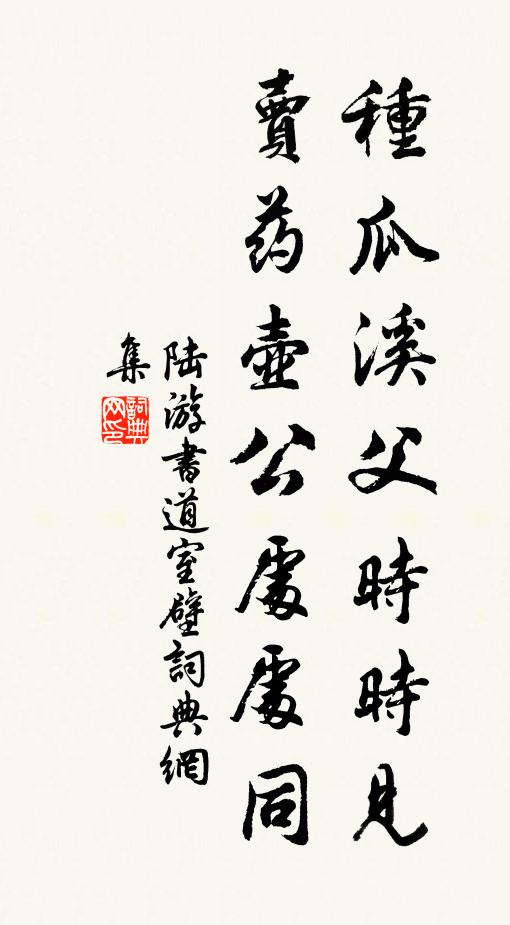 種瓜溪父時時見
賣药壺公處處同
陆游書道室壁詞典網
集
詞典
网印